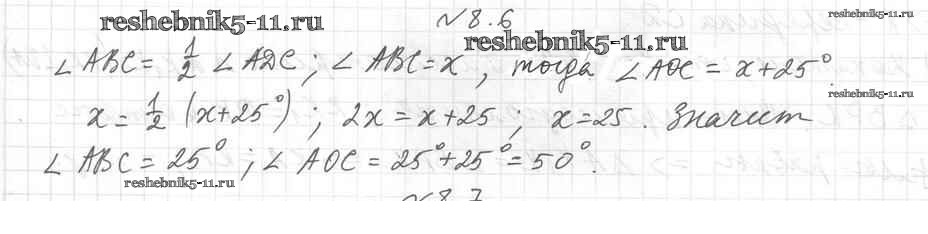 reshebnik5-11.ru
№8.6
reshebnik5-11.ru
reshebnik5-11.ru
∠ABC = 1/2 ∠ADC; ∠ABC = x, тогда ∠AOC = x+25°.
reshebnik5-11.ru
x = 1/2 (x+25°); 2x = x+25; x=25. Значит
∠ABC = 25°; ∠AOC = 25°+25°=50°.
reshebnik5-11.ru
№8.7